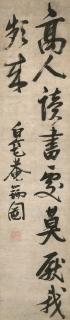 高人讀書處莫厭我
頻來
白毫菴瑞圖